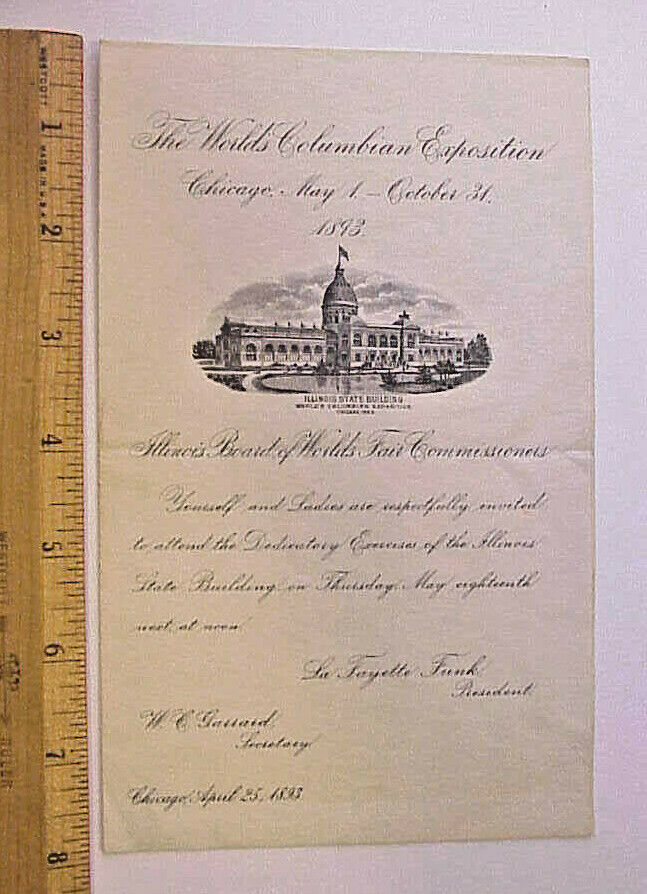 The World's Columbian Exposition
Chicago, May 1. – October 31.
1893.
ILLINOIS STATE BUILDING
WORLD'S COLUMBIAN EXPOSITION
CHICAGO 1893
Illinois Board of World's Fair Commissioners
Yourself and Ladies are respectfully invited
to attend the Dedicatory Exercises of the Illinois
State Building, on Thursday, May eighteenth
next, at noon.
La Fayette Funk,
President.
W. C. Garrard,
Secretary.
Chicago, April 25, 1893.
WESTCOTT
MADE IN U.S.A.
1
2
3
4
5
6
7
8